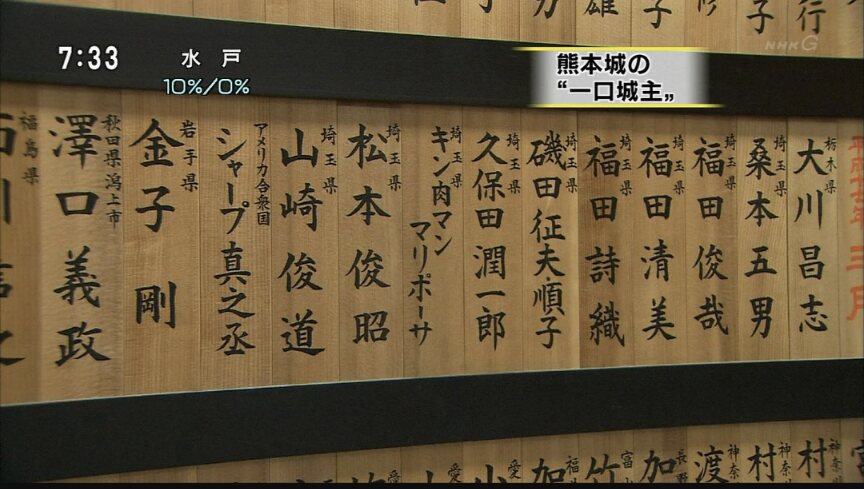 7:33
水戸
10%/0%
NHK G
熊本城の
“一口城主„
栃木県
大川昌志
埼玉県
桑本五男
埼玉県
福田俊哉
埼玉県
福田清美
埼玉県
福田詩織
埼玉県
磯田征夫順子
埼玉県
久保田潤一郎
埼玉県
キン肉マン
マリポーサ
埼玉県
松本俊昭
埼玉県
山崎俊道
アメリカ合衆国
シャープ真之丞
岩手県
金子剛
秋田県潟上市
澤口義政
福島県